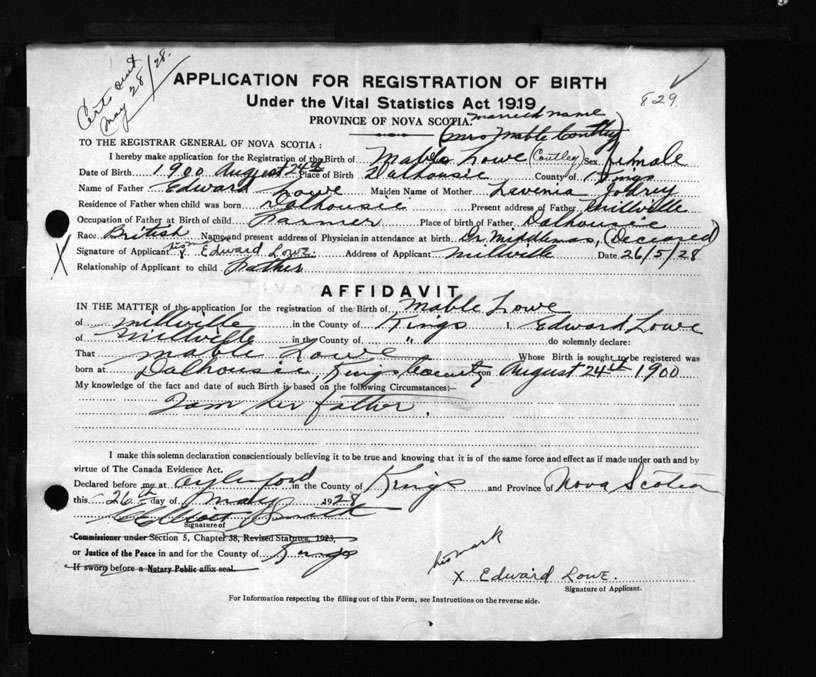 Certs sent
May 28/28.
829
APPLICATION FOR REGISTRATION OF BIRTH
Under the Vital Statistics Act 1919
PROVINCE OF NOVA SCOTIA.
married name
(Mrs Mable Contley)
TO THE REGISTRAR GENERAL OF NOVA SCOTIA :
I hereby make application for the Registration of the Birth of Mable Lowe (Contley) Sex female
Date of Birth 1900 August 24th Place of Birth Dalhousie County of Kings
Name of Father Edward Lowe Maiden Name of Mother Levenia Jodrey
Residence of Father when child was born Dalhousie Present address of Father Millville
Occupation of Father at Birth of child Farmer Place of birth of Father Dalhousie
Race British Name and present address of Physician in attendance at birth Dr. Middlemas, (Deceased)
Signature of Applicant Edward Lowe. Address of Applicant Millville Date 26/5/28
Relationship of Applicant to child Father
AFFIDAVIT
IN THE MATTER of the application for the registration of the Birth of Mable Lowe
of Millville in the County of Kings I, Edward Lowe
of Millville in the County of " do solemnly declare:
That Mable Lowe Whose Birth is sought to be registered was
born at Dalhousie, Kings County on August 24th 1900
My knowledge of the fact and date of such Birth is based on the following Circumstances:—
I am her father.
I make this solemn declaration conscientiously believing it to be true and knowing that it is of the same force and effect as if made under oath and by
virtue of The Canada Evidence Act.
Declared before me at Aylesford in the County of Kings and Province of Nova Scotia
this 26th day of May 1928
Smith
Signature of
Commissioner under Section 5, Chapter 38, Revised Statutes, 1923,
or Justice of the Peace in and for the County of Kings
If sworn before a Notary Public affix seal.
his mark
X Edward Lowe.
Signature of Applicant.
For Information respecting the filling out of this Form, see Instructions on the reverse side.